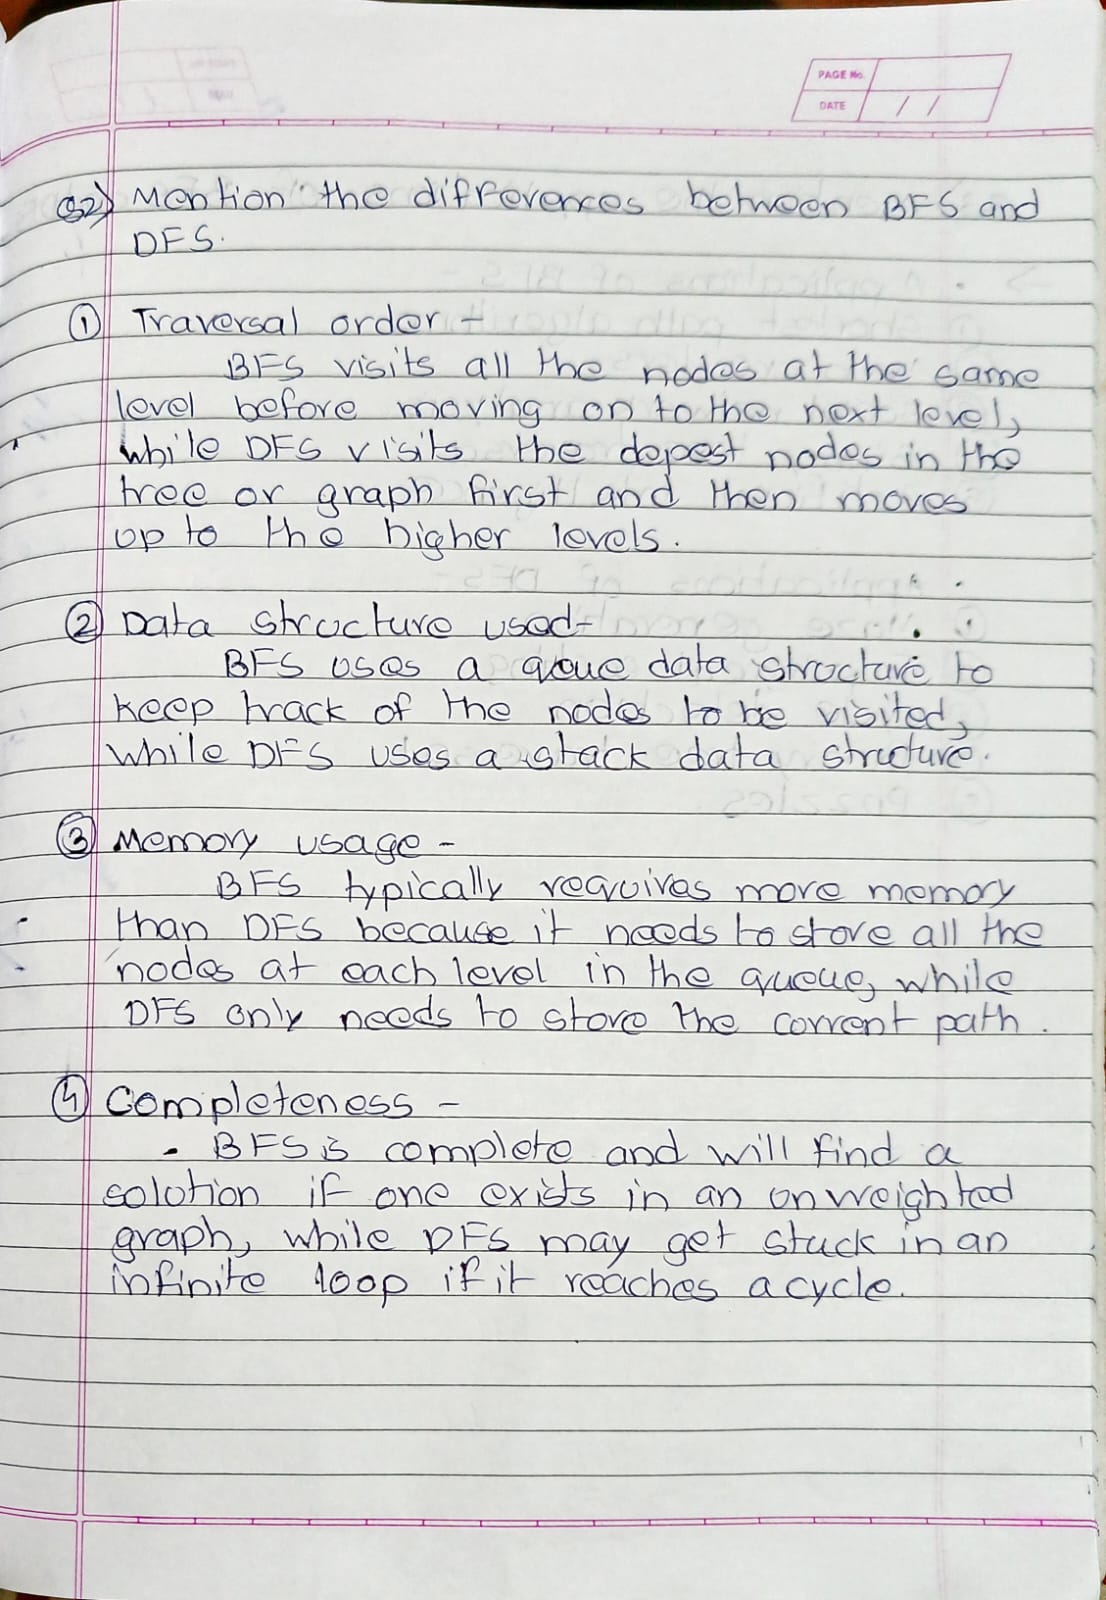 PAGE No.
DATE / /
Q2) Mention the differences between BFS and
DFS.
① Traversal order -
BFS visits all the nodes at the same
level before moving on to the next level,
while DFS visits the depest nodes in the
tree or graph first and then moves
up to the higher levels.
② Data structure used-
BFS uses a queue data structure to
keep track of the nodes to be visited,
while DFS uses a stack data structure.
③ Memory usage -
BFS typically requires more memory
than DFS because it needs to store all the
nodes at each level in the queue, while
DFS only needs to store the current path.
④ Completeness -
• BFS is complete and will find a
solution if one exists in an unweighted
graph, while DFS may get stuck in an
infinite loop if it reaches a cycle.